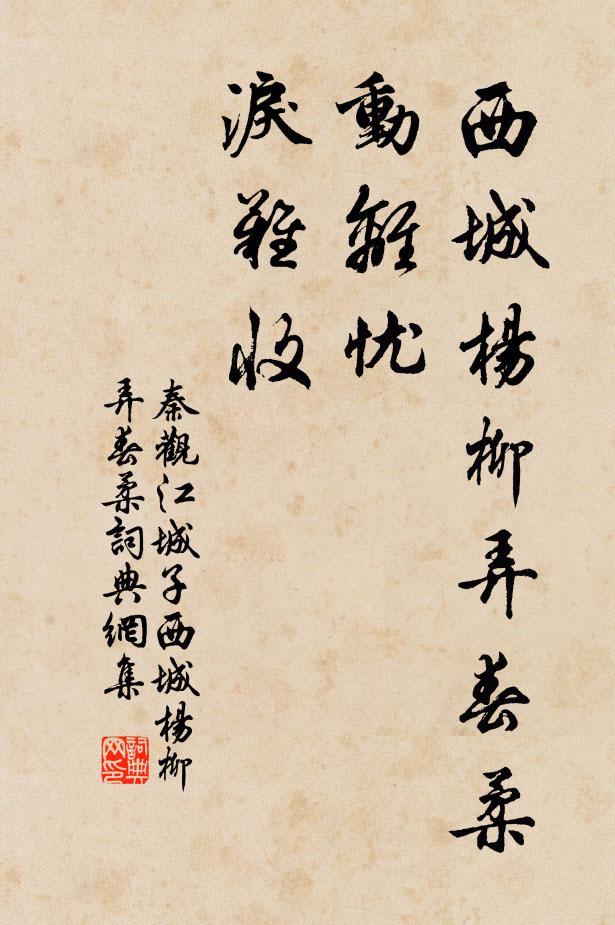 西城楊柳弄春柔
動離忧
淚難收
秦觀江城子西城楊柳
弄春柔詞典網集
詞典网印